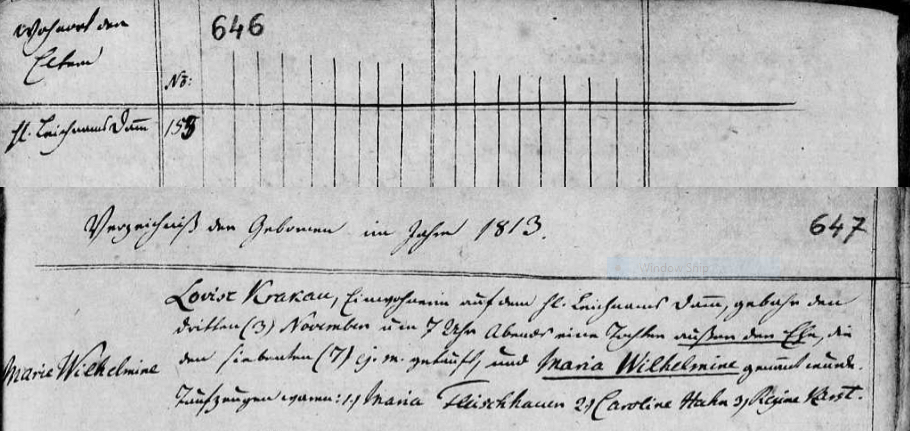 Wohnort der
Eltern
646
No:
hl. Leichnams Dam̅
155
Verzeichniß der Gebornen im Jahre 1813.
647
Window Snip
Lovise Krakau, Einwohnerin auf dem hl. Leichnams Dam̅, gebahr den
dritten (3) November um 7 Uhr Abends eine Tochter außer der Ehe, die
den siebenten (7) ej. m. getauft, und Maria Wilhelmine genannt wurde.
Marie Wilhelmine
Taufzeugen waren: 1, Maria Fleischhauer 2, Caroline Hahn 3, Regine Karst.